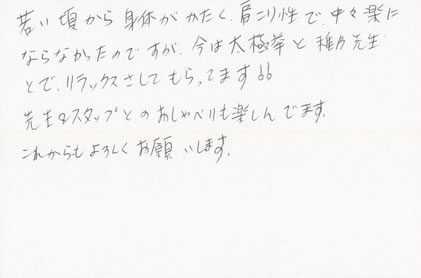 若い頃から身体がかたく、肩こり性で、中々楽に
ならなかったのですが、今は太極拳と 先生
とで、リラックスさしてもらってます!!
先生&スタッフとのおしゃべりも楽しんでます。
これからもよろしくお願いします。